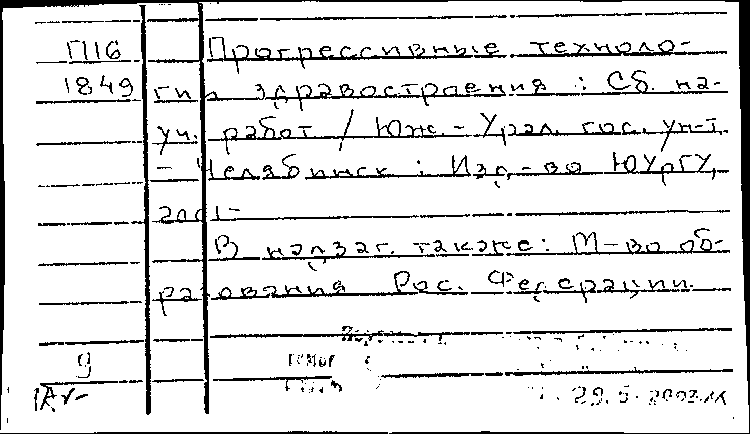 П116 Прогрессивные техноло-
1849 гии здравостроения : Сб. на-
уч. работ / Юж.-Урал. гос. ун-т.
- Челябинск : Изд-во ЮУрГУ,
2001-
В надзаг. также: М-во об-
разования Рос. Федерации.
9
29.5.2003